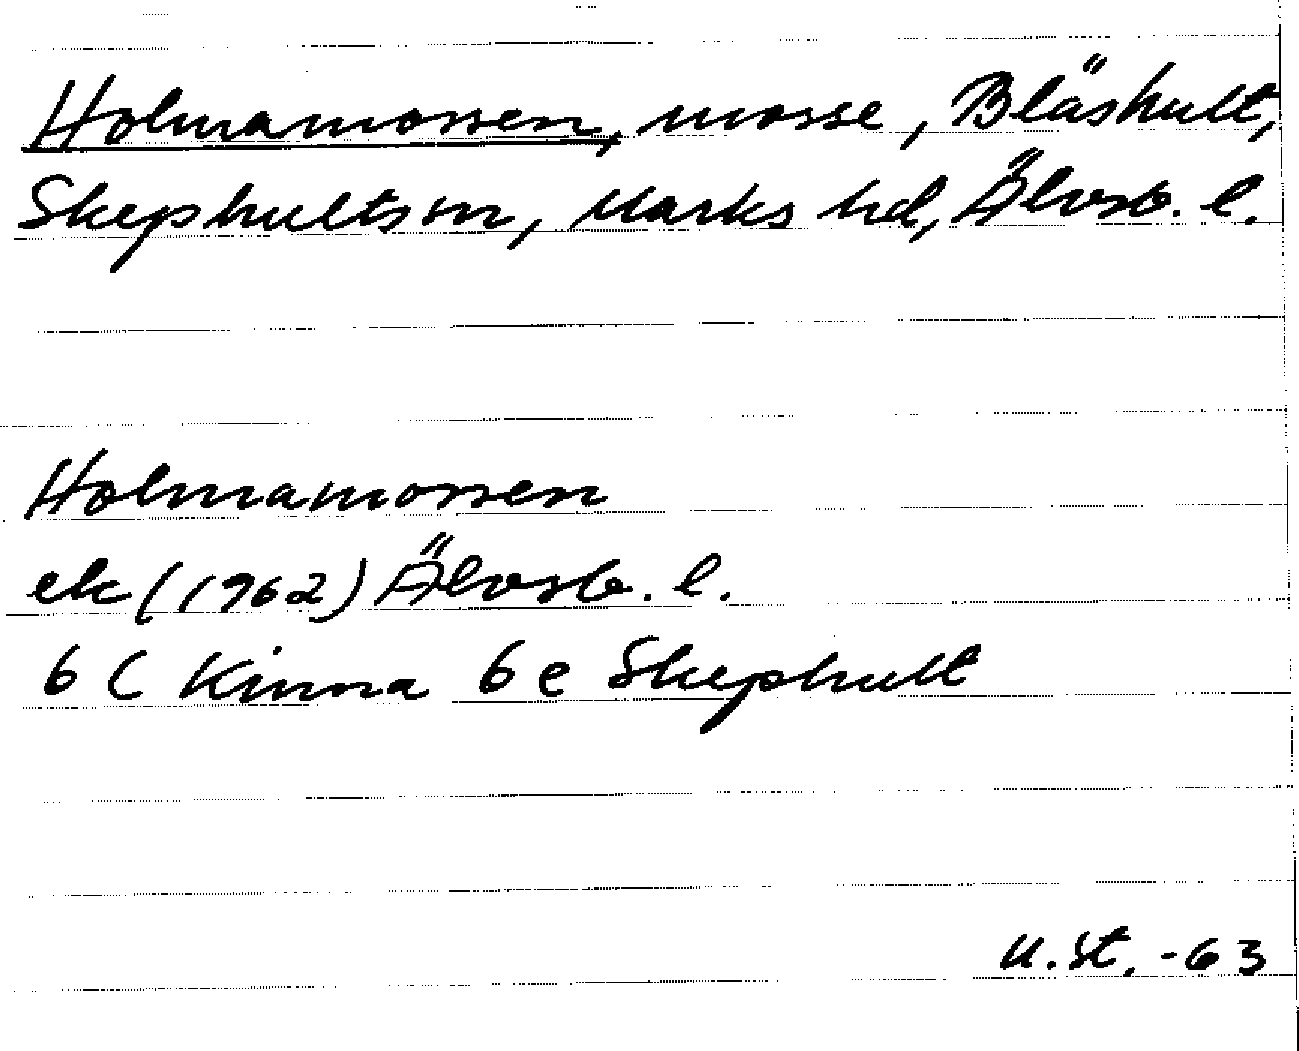 Holmamossen, mosse, Bläshult,
Skephults sn, Marks hd, Älvsb. l.
Holmamossen
ek (1962) Älvsb. l.
6 C Kinna 6 e Skephult
U. St. -63